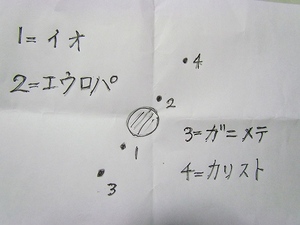 1=イオ
2=エウロパ
4
2
1
3
3=ガニメテ
4=カリスト